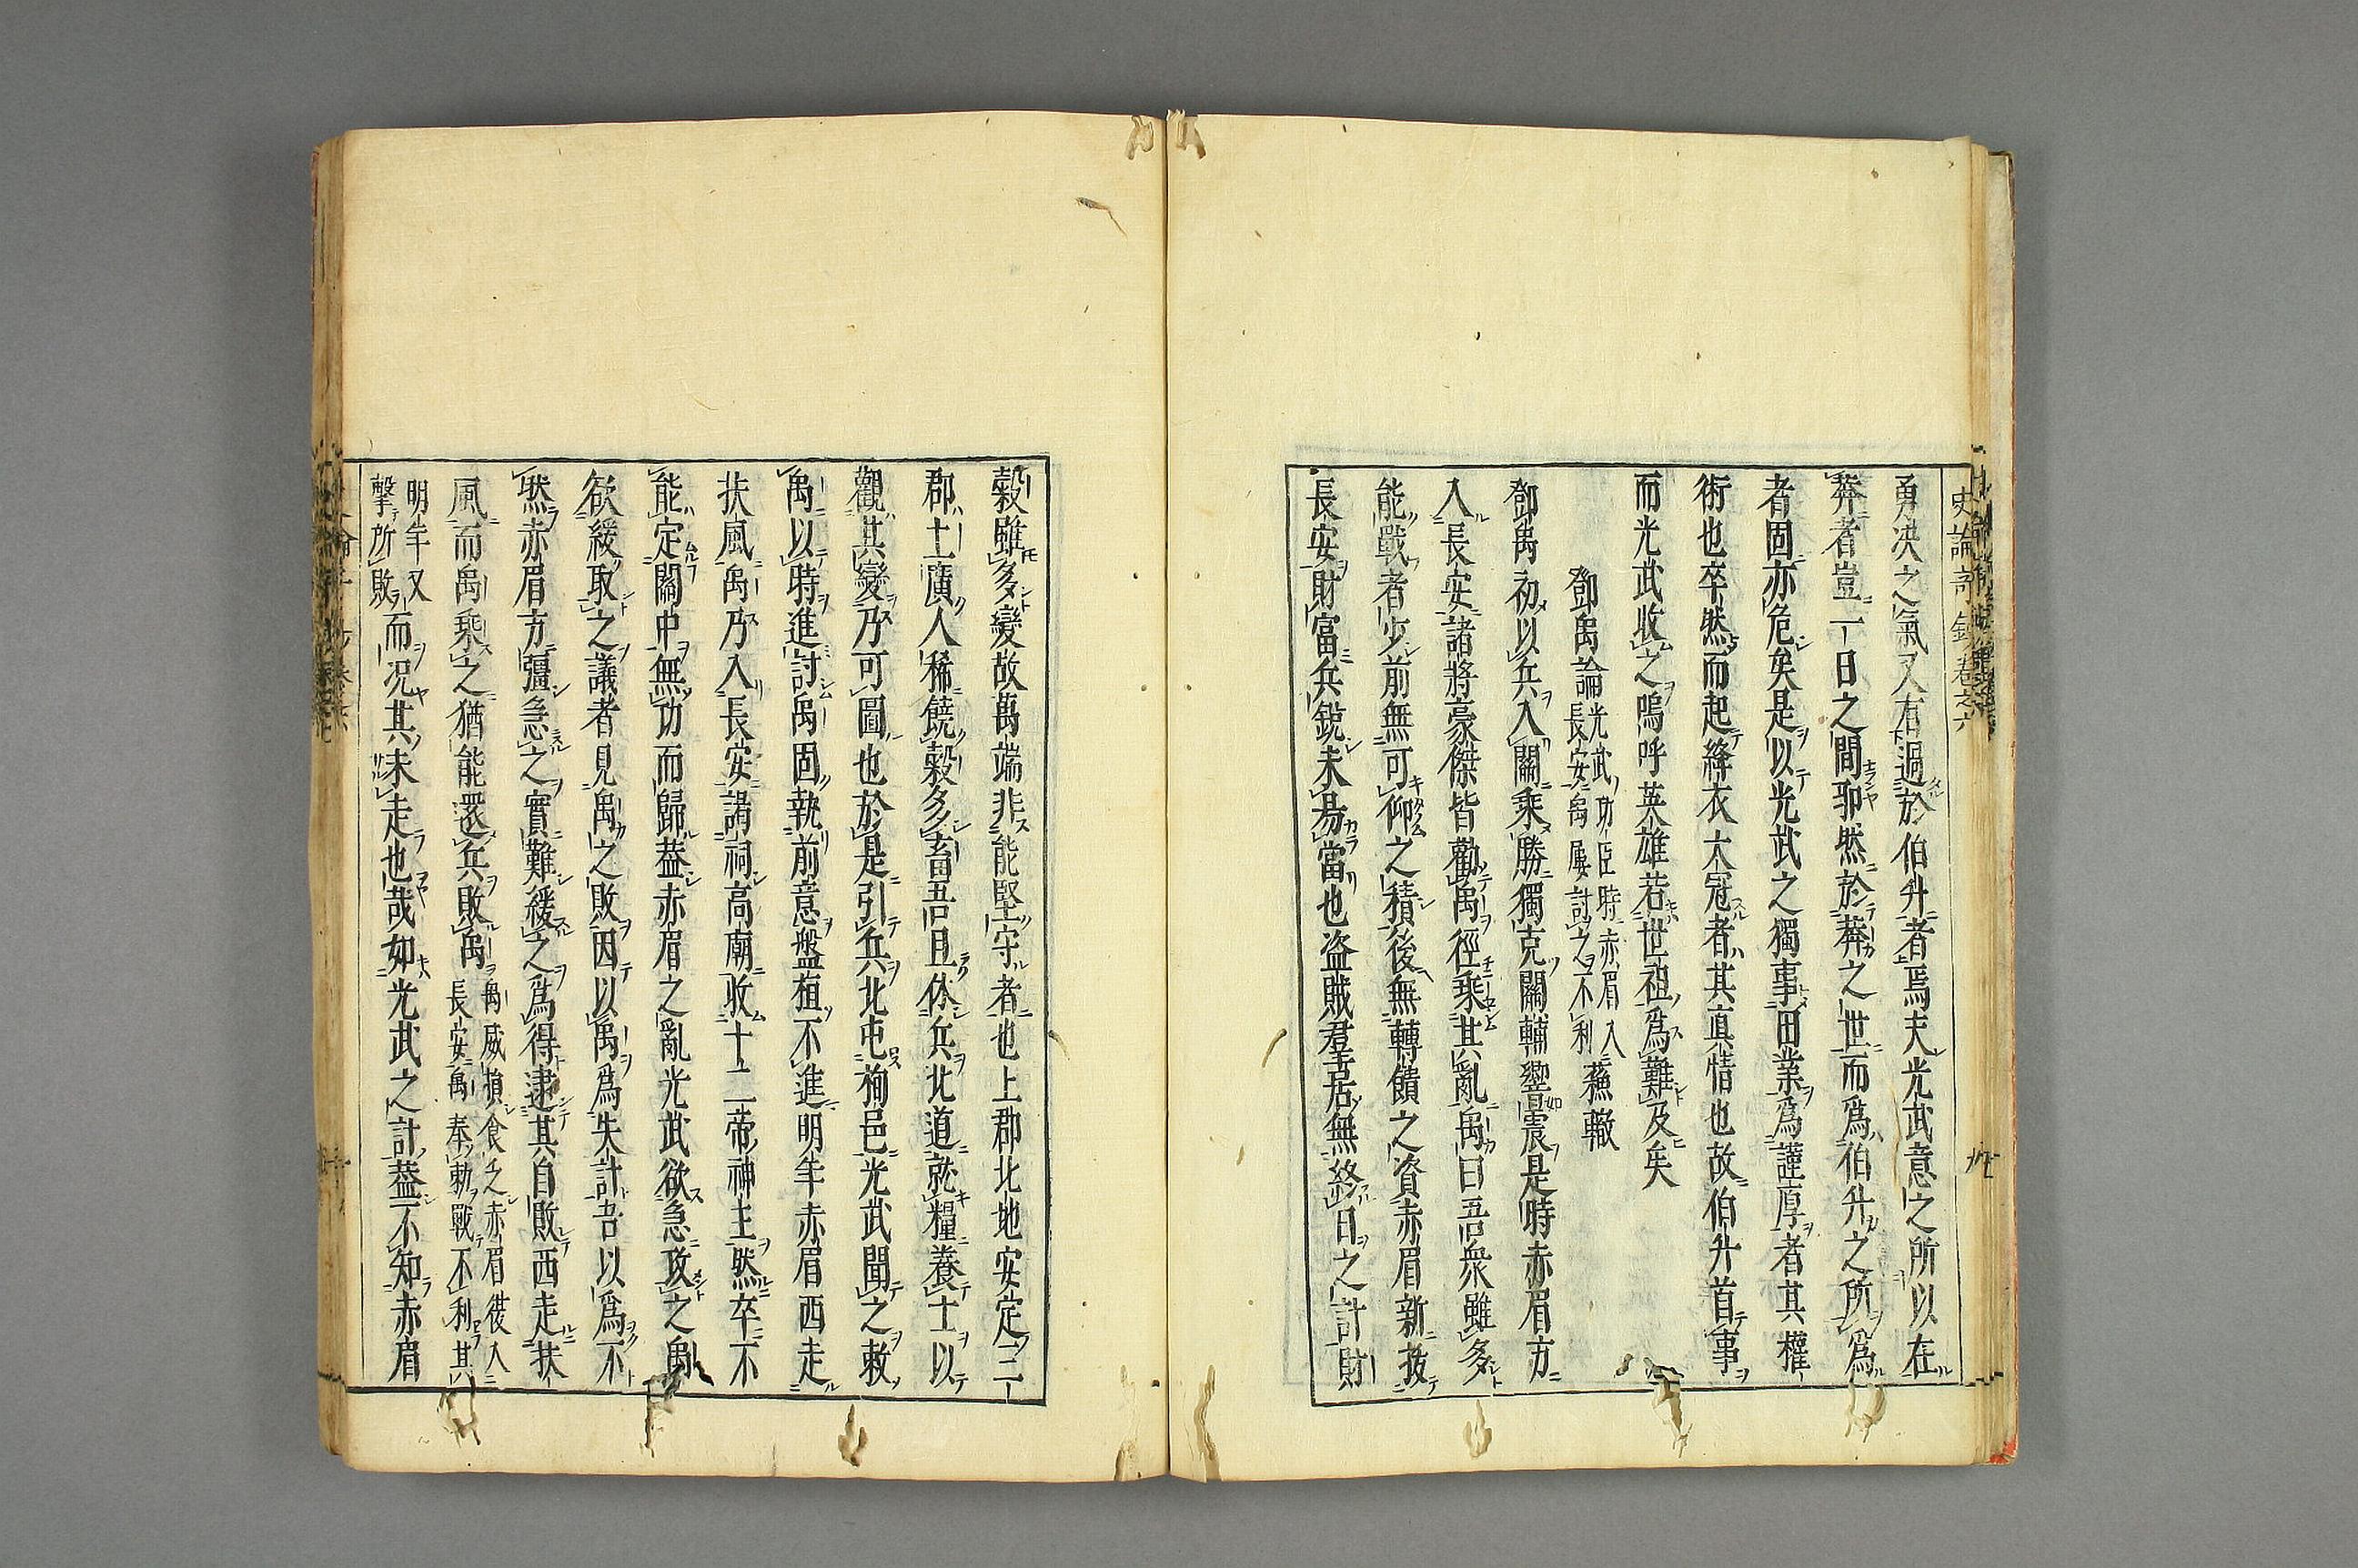 史論奇鈔卷之六
勇决之氣又有過於伯升者焉夫光武意之所以在
莽者豈一日之間耶然於莽之世而爲伯升之所爲
者固亦危矣是以光武之獨事田業爲謹厚者其權
術也卒然而起絳衣大冠者其真情也故伯升首事
而光武收之嗚呼英雄若世祖爲難及矣
鄧禹論光武功臣時赤眉入長安禹屢討之不利蘓轍
鄧禹初以兵入關乘勝獨克關輔響震是時赤眉方
入長安諸將豪傑皆勸禹徑乘其亂禹曰吾衆雖多
能戰者少前無可仰之積後無轉饋之資赤眉新拔
長安財富兵銳未易當也盗賊羣居無終日之計財
穀雖多變故萬端非能堅守者也上郡北地安定三
郡土廣人稀饒穀多畜吾且休兵北道就糧養士以
觀其變乃可圖也於是引兵北屯栒邑光武聞之敕
禹以時進討禹固執前意盤桓不進明年赤眉西走
扶風禹乃入長安謁祠高廟收十二帝神主然卒不
能定關中無功而歸葢赤眉之亂光武欲急攻之禹
欲緩取之議者見禹之敗因以禹爲失計吾以爲不
然赤眉方彊急之實難緩之爲得逮其自敗西走扶
風而禹乘之猶能還兵敗禹禹威損食乏赤眉復入長安禹奉勅戰不利其
明年又擊所敗而况其未走也哉如光武之計葢不知赤眉